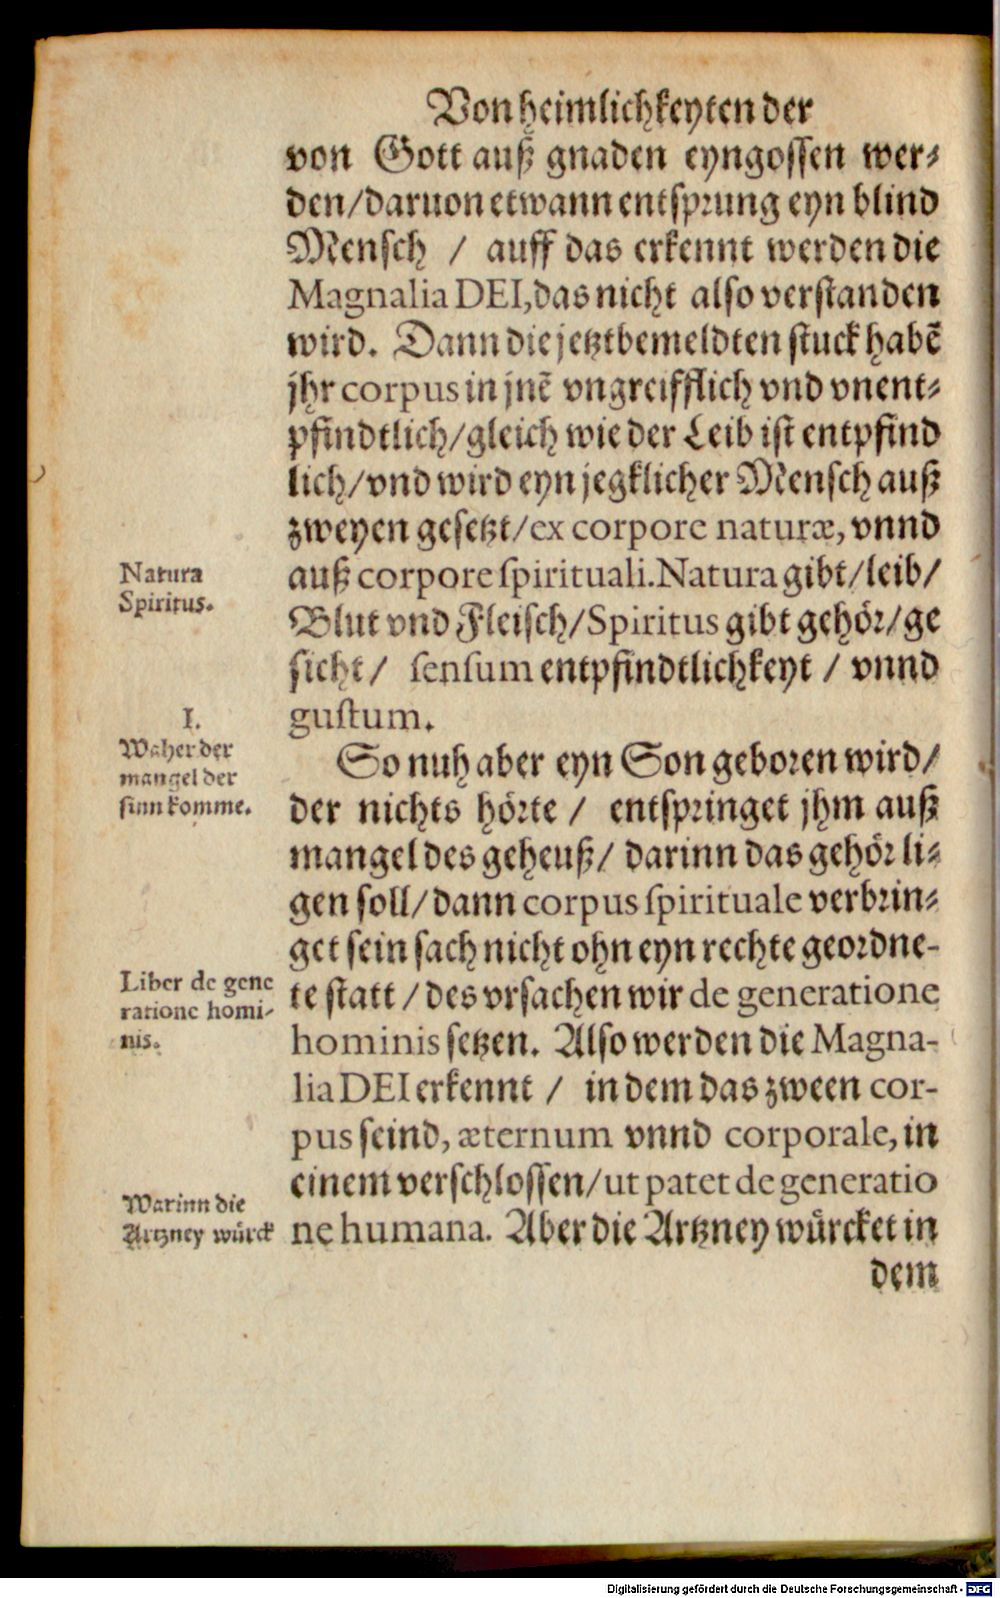 Von heimlichkeyten der
von Gott auß gnaden eyngossen wer⸗
den/daruon etwann entsprung eyn blind
Mensch / auff das erkennt werden die
Magnalia DEI, das nicht also verstanden
wird. Dann die jetztbemeldten stuck habē
jhr corpus in jnē vngreifflich vnd vnent⸗
pfindtlich/gleich wie der Leib ist entpfind
lich/vnd wird eyn jegklicher Mensch auß
zweyen gesetzt/ex corpore naturæ, vnnd
auß corpore spirituali. Natura gibt/leib/
Blut vnd Fleisch/Spiritus gibt gehör/ge
sicht/ sensum entpfindtlichkeyt / vnnd
gustum.
Natura
Spiritus.
So nuh aber eyn Son geboren wird/
der nichts hörte / entspringet jhm auß
mangel des geheuß/ darinn das gehör li⸗
gen soll/dann corpus spirituale verbrin⸗
get sein sach nicht ohn eyn rechte geordne-
te statt / des vrsachen wir de generatione
hominis setzen. Also werden die Magna-
lia DEI erkennt / in dem das zween cor-
pus seind, æternum vnnd corporale, in
einem verschlossen/ut patet de generatio
ne humana. Aber die Artzney würcket in
dem
I.
Waher der
mangel der
sinn komme.
Liber de gene
ratione homi-
nis.
Warinn die
Artzney würck
Digitalisierung gefördert durch die Deutsche Forschungsgemeinschaft - DFG